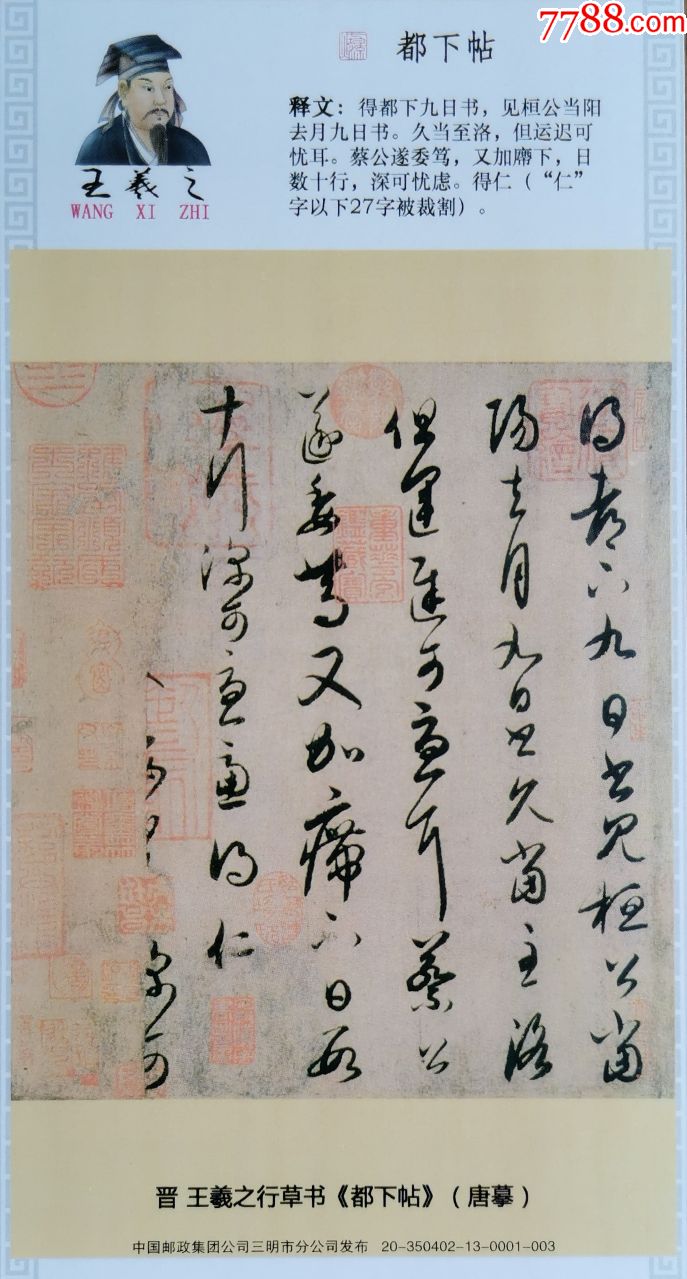 7788.com
都下帖
释文：得都下九日书，见桓公当阳
去月九日书。久当至洛，但运迟可
忧耳。蔡公遂委笃，又加㿃下，日
数十行，深可忧虑。得仁（“仁”
字以下27字被裁割）。
王羲之
WANG XI ZHI
得都下九日书见桓公当
阳去月九日书久当至洛
但运迟可忧耳蔡公
遂委笃又加㿃下日数
十行深可忧虑得仁
晋 王羲之行草书《都下帖》（唐摹）
中国邮政集团公司三明市分公司发布 20-350402-13-0001-003